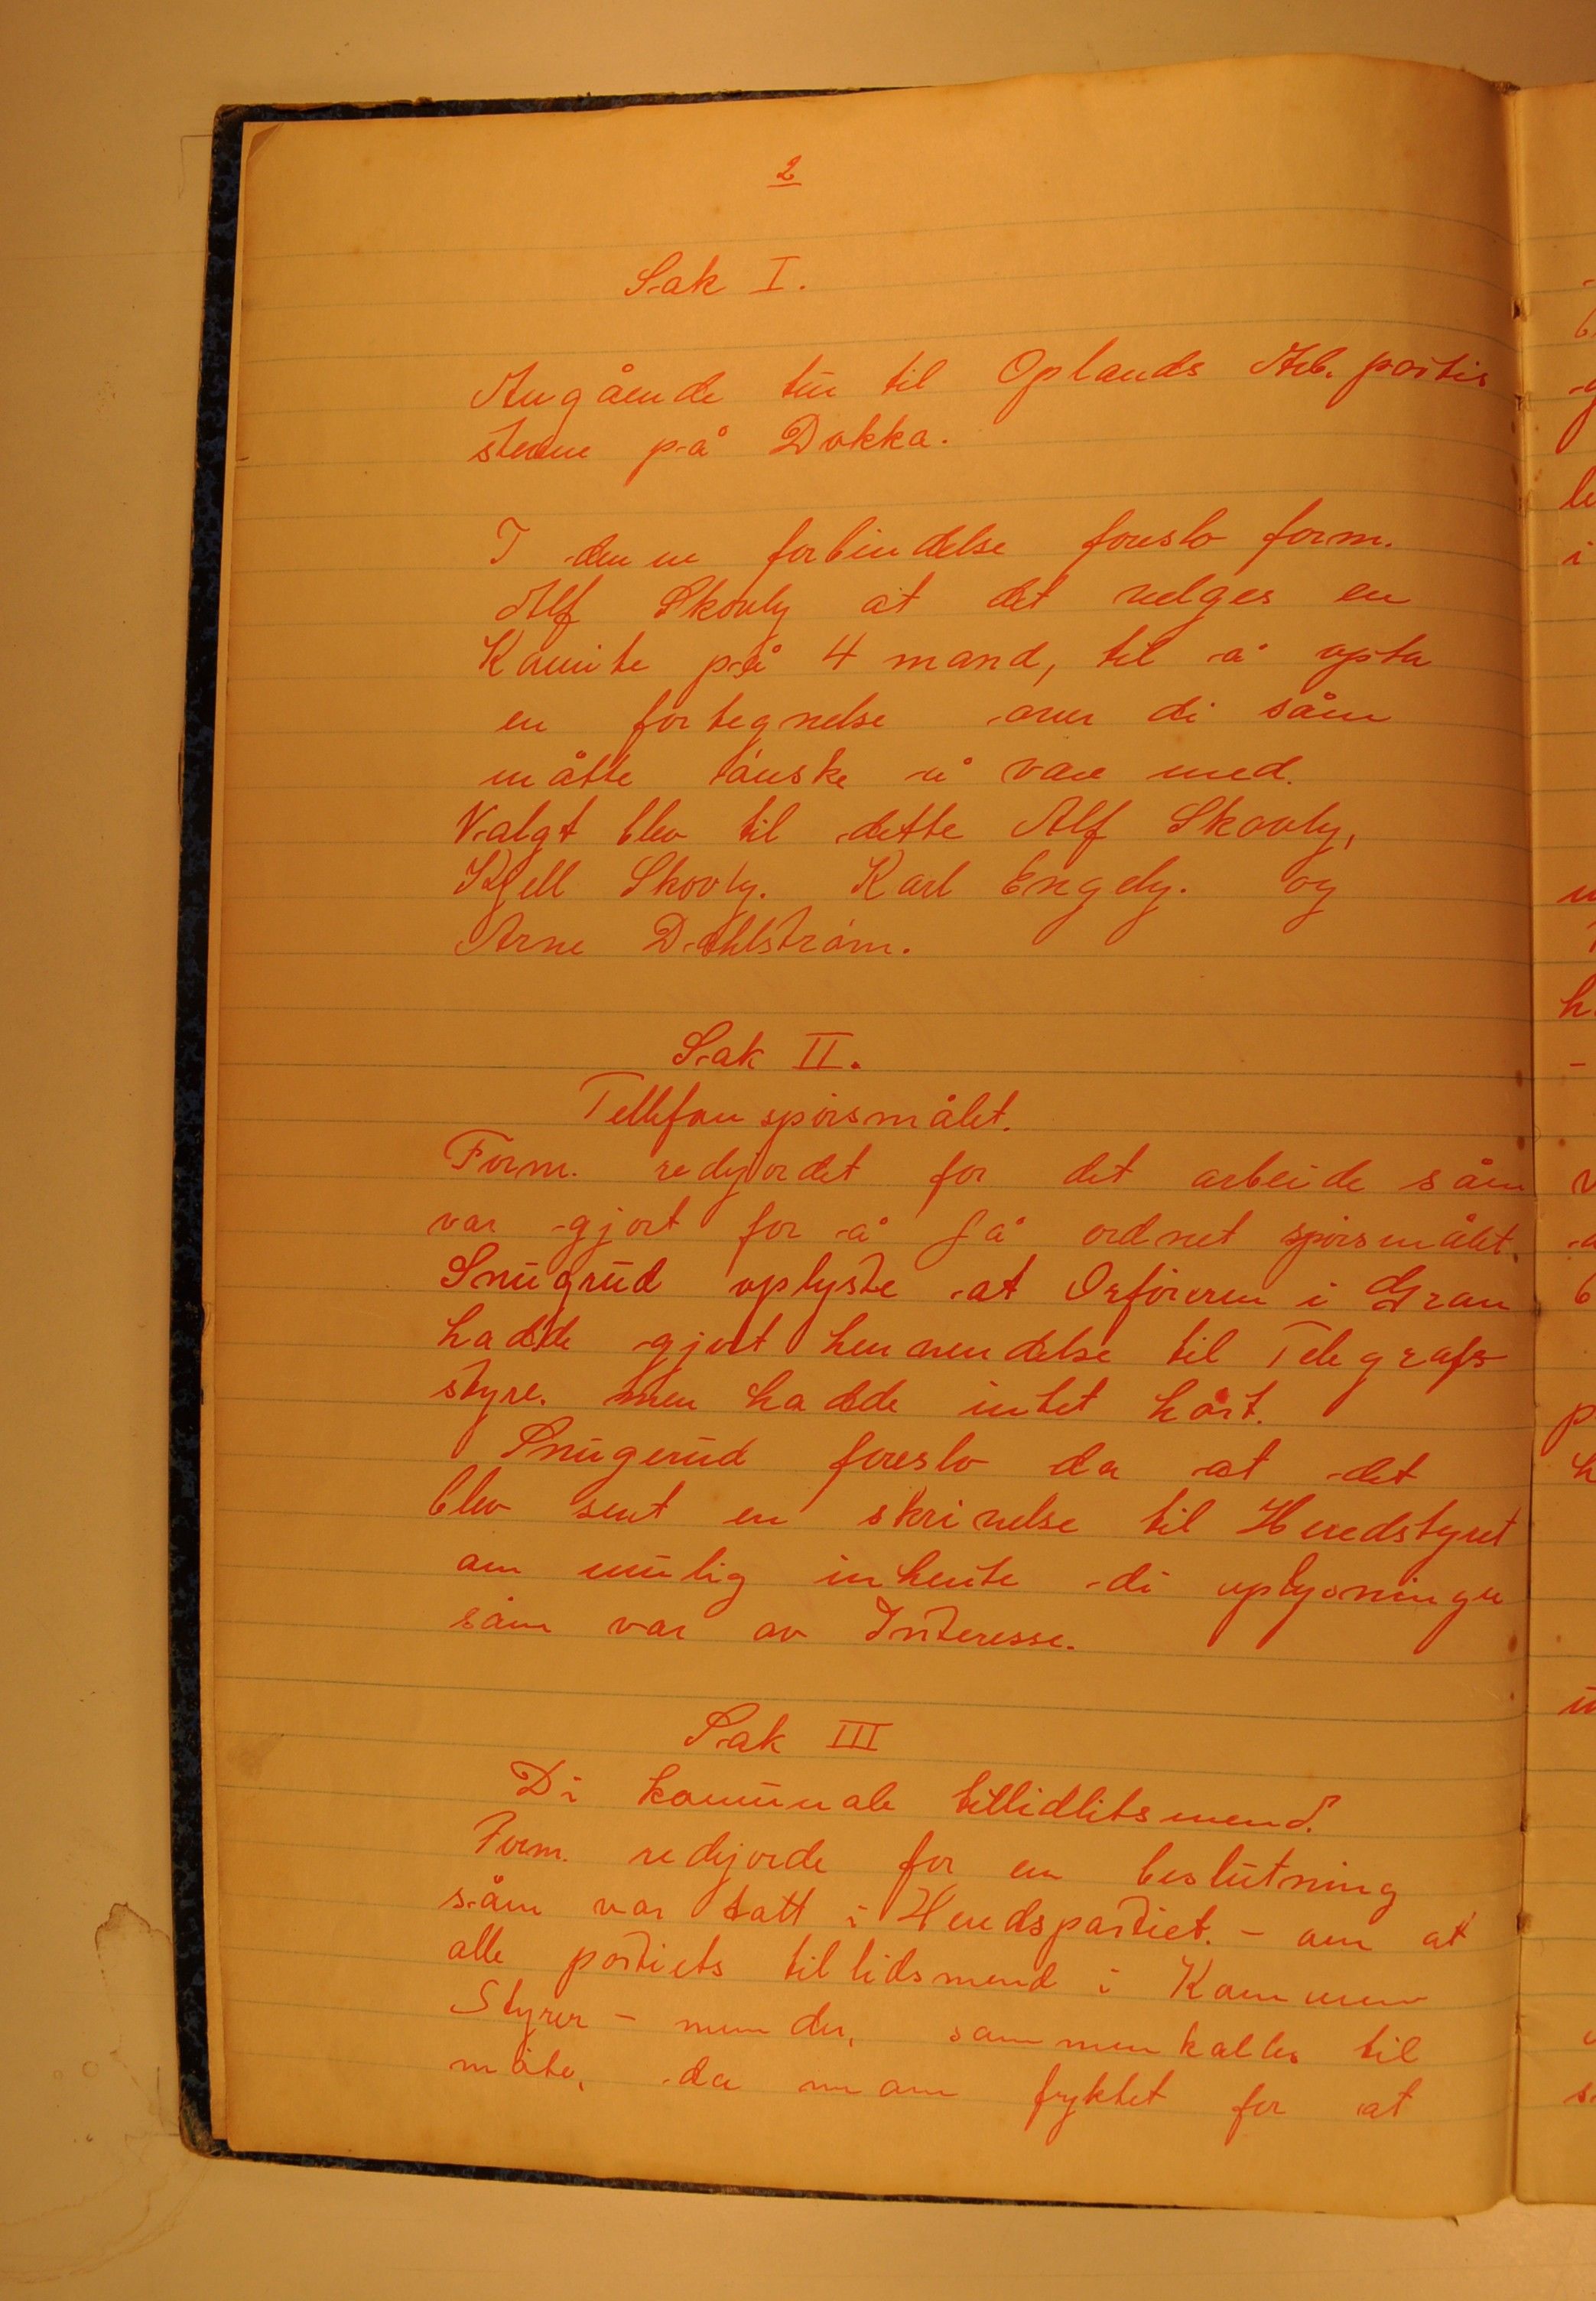 2
Sak I.
Angående tur til Oplands Arb. partis
stevne på Dokka.
I denne forbindelse foreslo form.
Alf Skovly at det velges en
Komite på 4 mand, til å opta
en fortegnelse over di såm
måtte ønske å være med.
Valgt blev til dette Alf Skovly,
Kjell Skovly. Karl Engely. og
Arne Dahlstrøm.
Sak II.
Tellefon spørsmålet.
Form. redejordet for det arbeide såm
var gjort for å få ordnet spørsmålet.
Snugrud oplyste at Orføreren i Gran
hadde gjort hennvendelse til Telegrafs
styre. men hadde intet hørt.
Snugerud foreslo da at det
blev sent en skrivelse til Heredstyret
om mulig inhente di oplysninger
såm var av Interesse.
Sak III
Di komunale tillidlitsmend.
Form. redejorde for en beslutning
såm var tatt i Heredspartiet. - om at
alle partiets tillidsmend i Kommunen
Styrer - nemder, sammenkalles til
møte, da mam fryktet for at